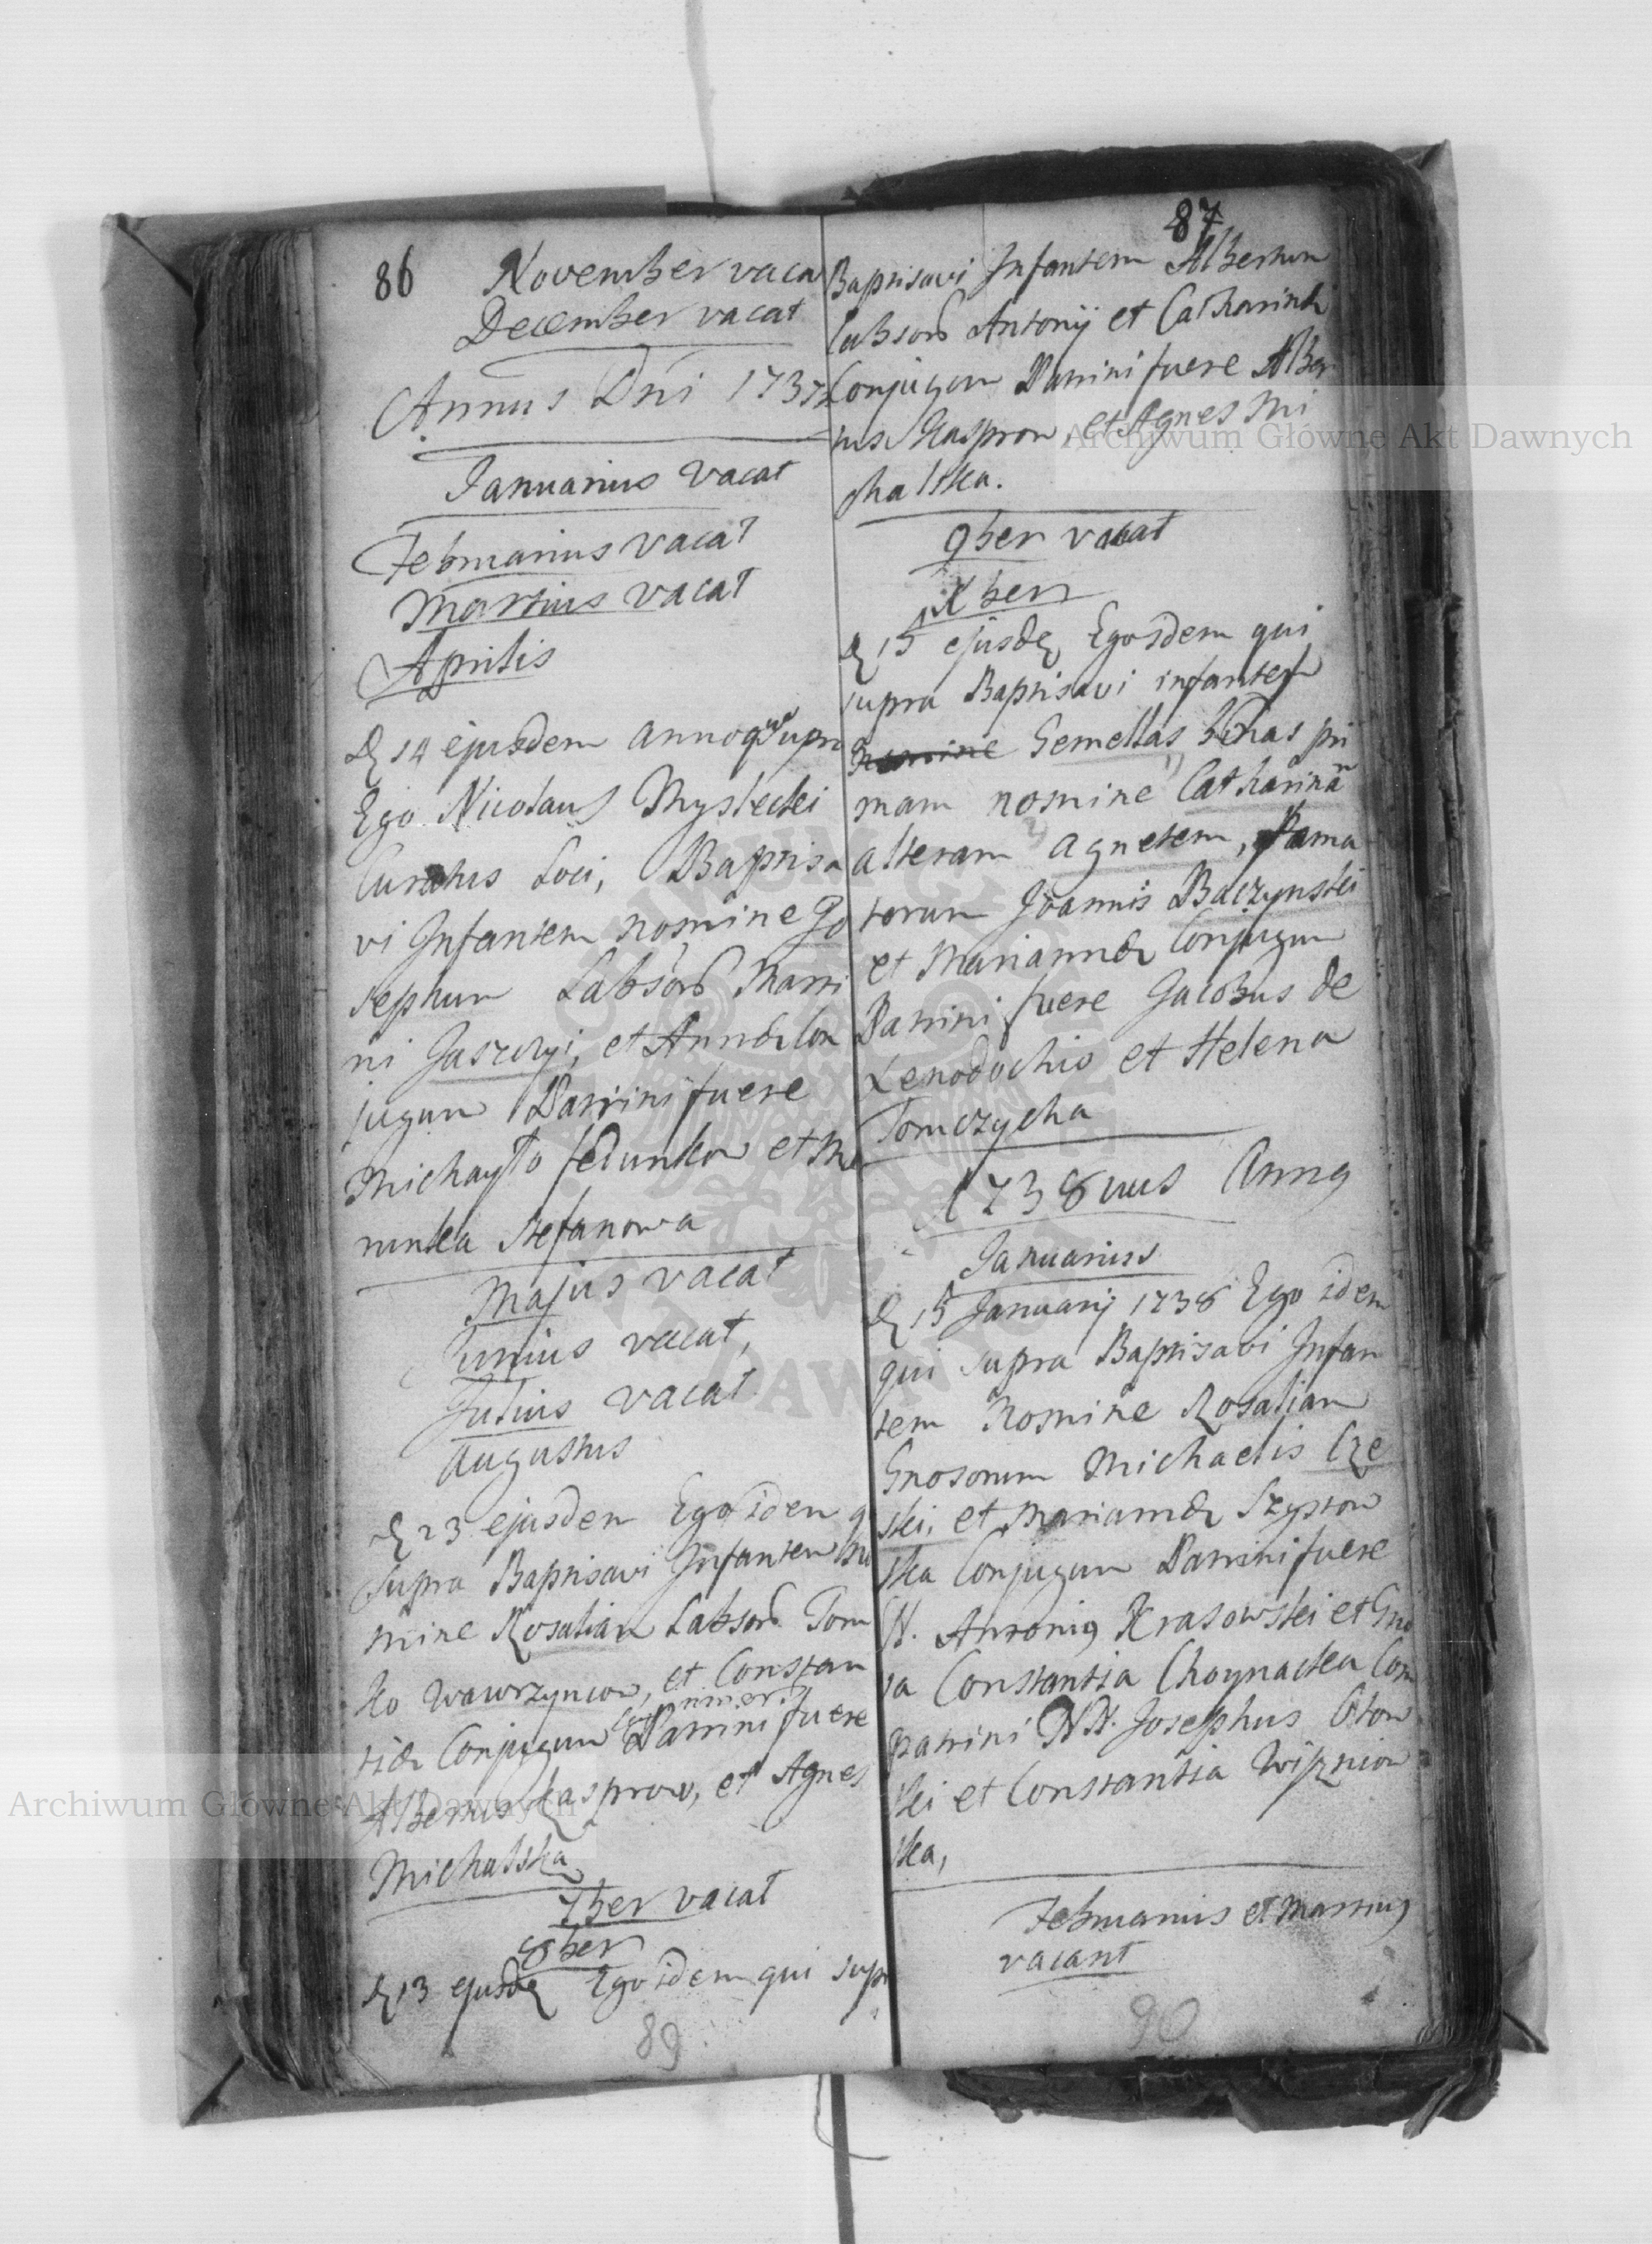 86
November vaca
December vacat
Annus Dni 1737
Januarius vacat
Februarius vacat
Martius vacat
Aprilis
D 14 ejusdem anno quo supra
Ego Nicolaus Myslecki
Curatus Loci, Baptisa
vi Infantem nomine Jo
sephum Labsorū Marti
ni Jaszczyj, et Annæ Con
jugum Patrini fuere
Michayło fedunkow et Ma
runka Stefanowa
Majus vacat
Junius vacat,
Julius vacat
Augustus
D 23 ejusdem Ego idem q
supra Baptisavi Infantem no
mine Rosaliam Labsorū Tom
ko Wawrzyncow, et Constan
tiæ Conjugum Patrini fuere
Albertus Kasprow, et Agnes
Michalska
7ber vacat
8ber
D 13 ejusdē Ego idem qui supr
89
87
Baptisavi Infantem Albertum
Labsorū Antonij et Catharinæ
Conjugum Patrini fuere Alber
tus Kasprow, et Agnes Mi
chalska.
9ber vacat
Xber
D 15 ejusdē Ego idem qui
supra Baptisavi infantes
nomine Gemellas binas pri
mam nomine Catharinā
alteram Agnetem,
torum Joannis Baczynski
et Mariannæ Conjugum
Patrini fuere Jacobus de
Xenodochio et Helena
Tomczycha
1738vus Annus
Januarius
D 15 Januarij 1738 Ego idem
qui supra Baptisavi Infan
tem Nomine Rosaliam
Gnosorum Michaelis Cze
ski, et Mariannæ Szystow
ska Conjugum Patrini fuere
N. Antonius Krasowski et Gno
sa Constantia Choynacka Com
patrini NN. Josephus Oton
ski et Constantia Wiszniow
ska,
Februarius et Martius
vacant
90
Archiwum Główne Akt Dawnych
Archiwum Główne Akt Dawnych